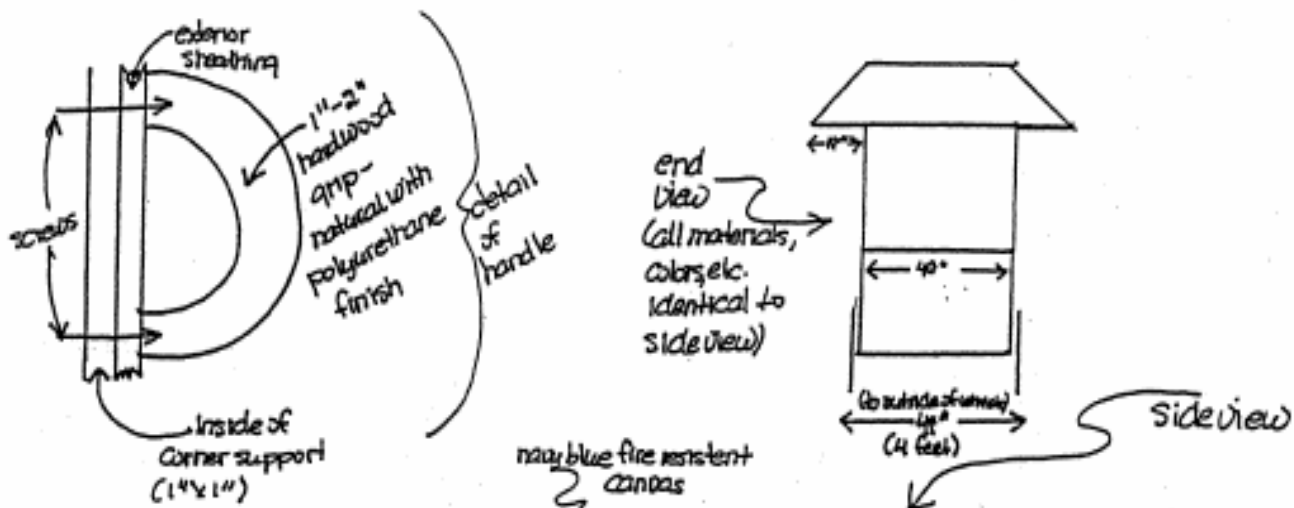 exterior
sheathing
1"-2"
hardwood
grip-
natural with
polyurethane
finish
screws
detail
of
handle
Inside of
corner support
(1"x1")
navy blue fire resistent
canvas
end
view
(all materials,
colors, etc.
identical to
side view)
40"
(to outside of
(4 feet)
side view